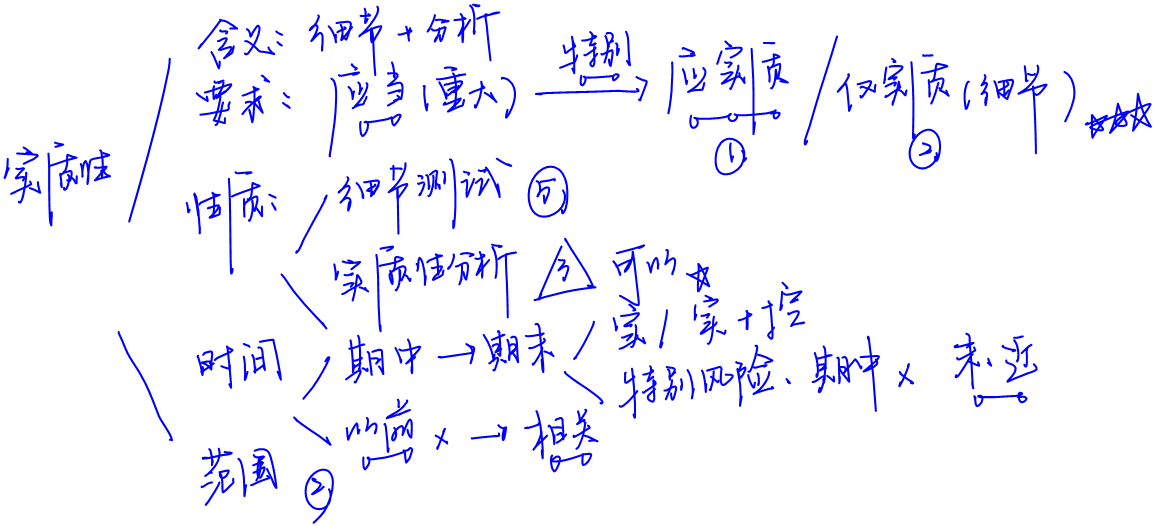 实质性
含义：细节+分析
要求：应当（重大） → 特别 应实质 ① / 仅实质（细节） ② ☆☆☆
性质：细节测试 ⑤
实质性分析 △3 可以 ☆
时间 期中→期末 实/实+控
特别风险、期中× 末、近
以前×→相关
范围 ②